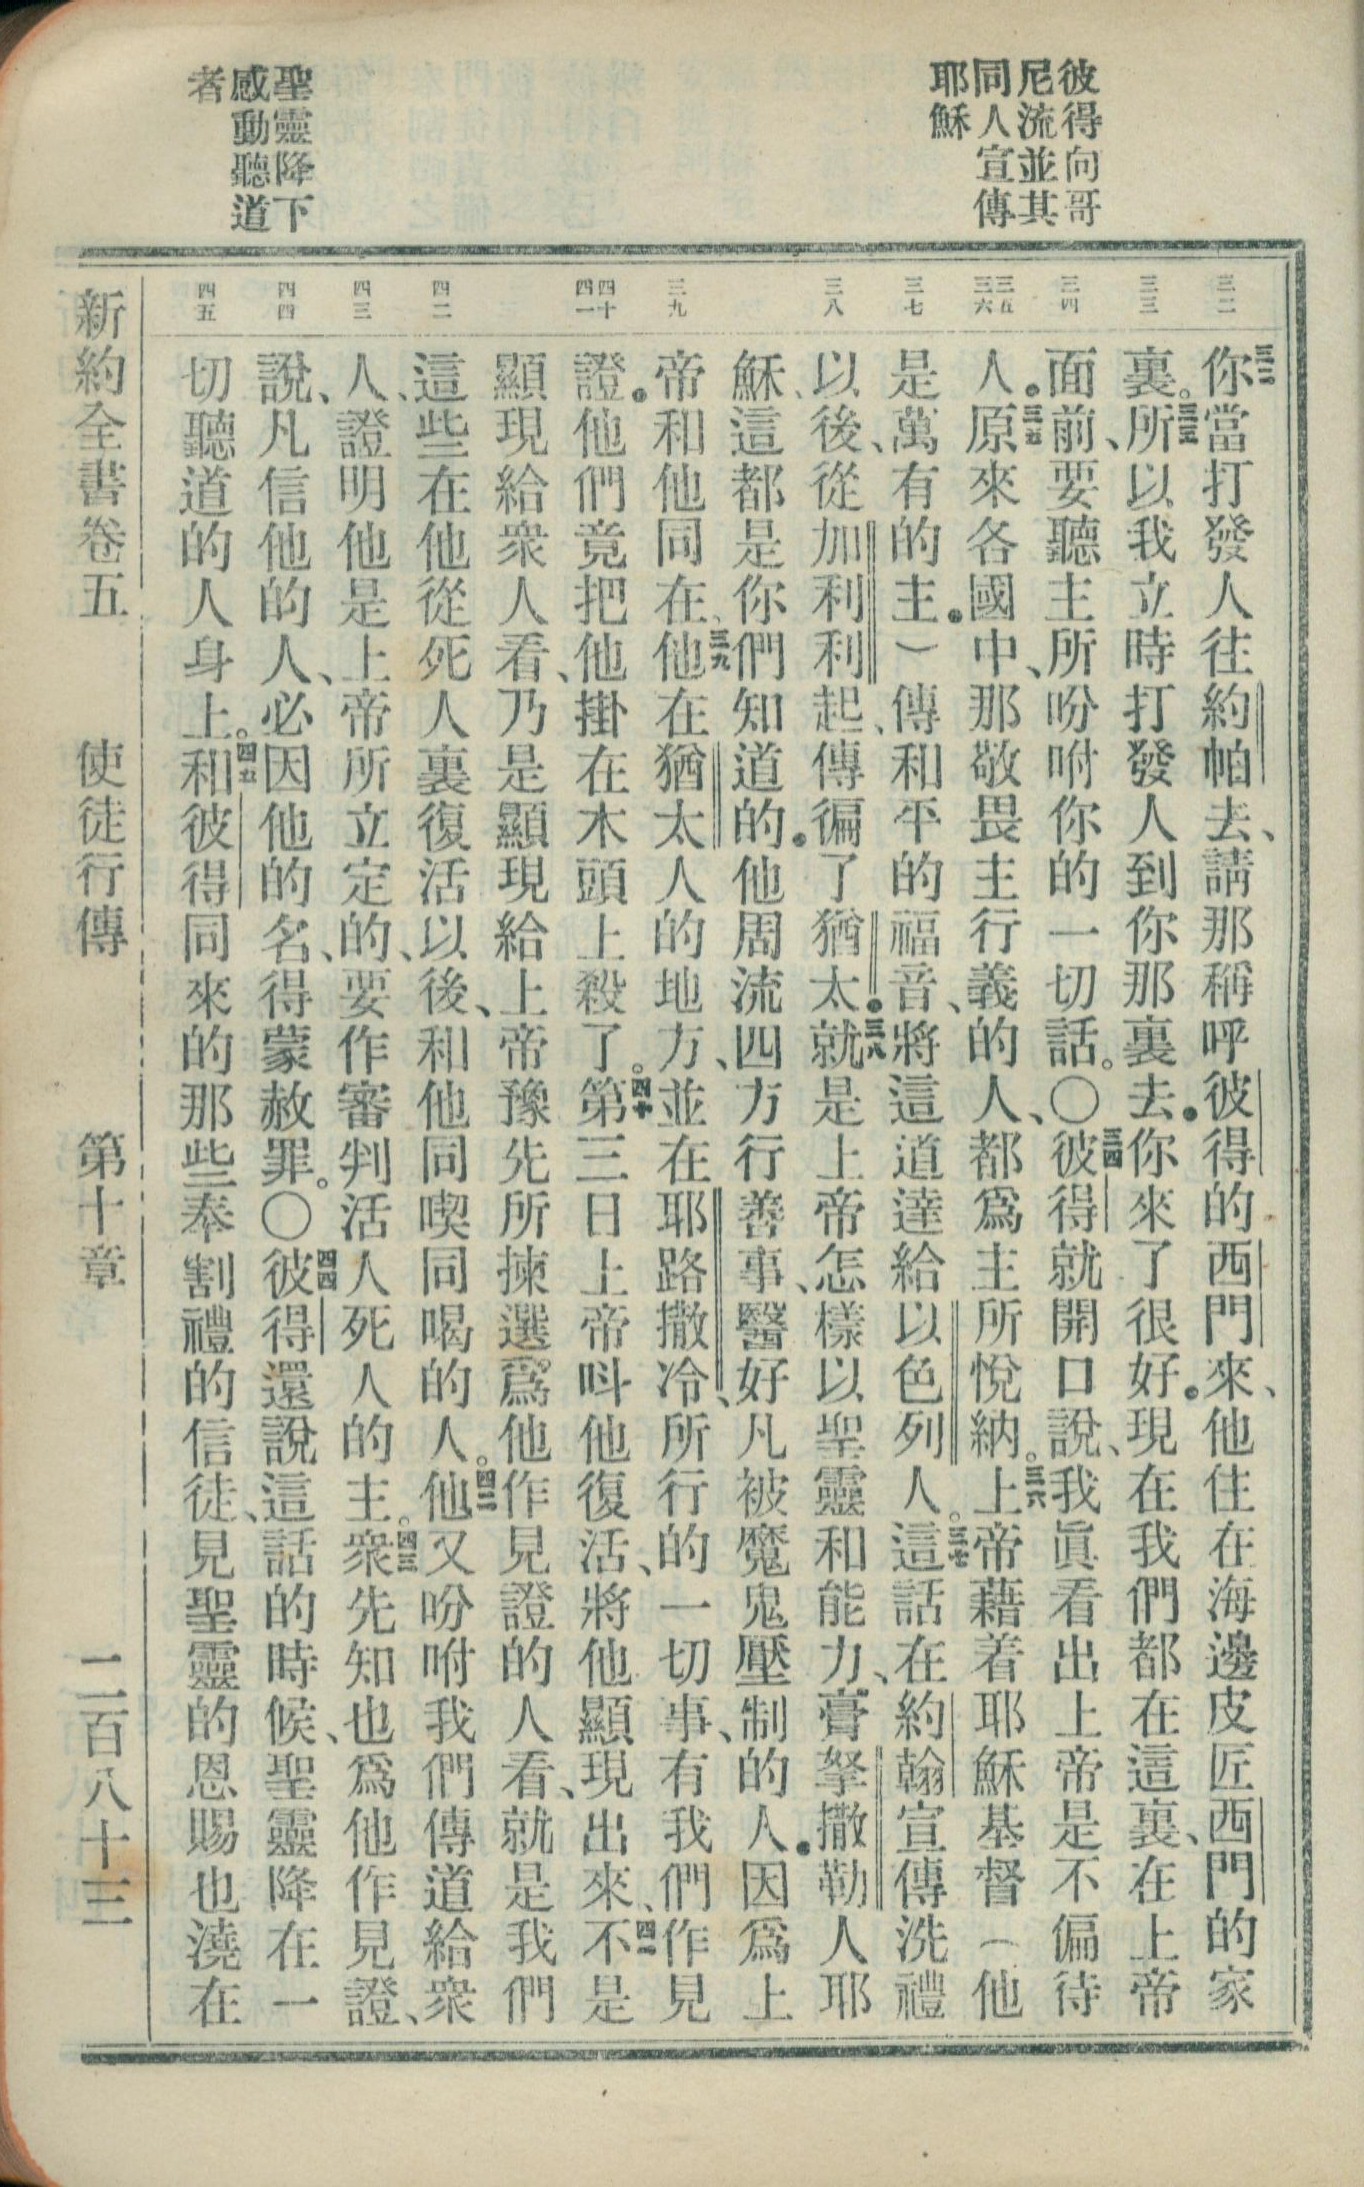 彼得向哥
尼流並其
同人宣傳
耶穌
聖靈降下
感動聽道
者
三二
三三
三四
三五
三六
三七
三八
三九
四十
四一
四二
四三
四四
四五
三二你當打發人往約帕去、請那稱呼彼得的西門來、他住在海邊皮匠西門的家
裏。三三所以我立時打發人到你那裏去.你來了很好.現在我們都在這裏、在上帝
面前、要聽主所吩咐你的一切話。〇三四彼得就開口說、我眞看出上帝是不偏待
人.三五原來各國中、那敬畏主行義的人、都爲主所悅納。三六上帝藉着耶穌基督(他
是萬有的主.)傳和平的福音、將這道達給以色列人。三七這話在約翰宣傳洗禮
以後、從加利利起、傳徧了猶太.三八就是上帝怎樣以聖靈和能力、膏拏撒勒人耶
穌、這都是你們知道的.他周流四方行善事、醫好凡被魔鬼壓制的人.因爲上
帝和他同在、三九他在猶太人的地方、並在耶路撒冷、所行的一切事、有我們作見
證.他們竟把他掛在木頭上殺了。四十第三日上帝呌他復活、將他顯現出來、四一不是
顯現給衆人看、乃是顯現給上帝豫先所揀選爲他作見證的人看、就是我們
這些在他從死人裏復活以後、和他同喫同喝的人。四二他又吩咐我們傳道給衆
人、證明他是上帝所立定的、要作審判活人死人的主。四三衆先知也爲他作見證、
說、凡信他的人、必因他的名、得蒙赦罪。〇四四彼得還說這話的時候、聖靈降在一
切聽道的人身上。四五和彼得同來的那些奉割禮的信徒、見聖靈的恩賜也澆在
新約全書卷五 使徒行傳 第十章 二百八十三